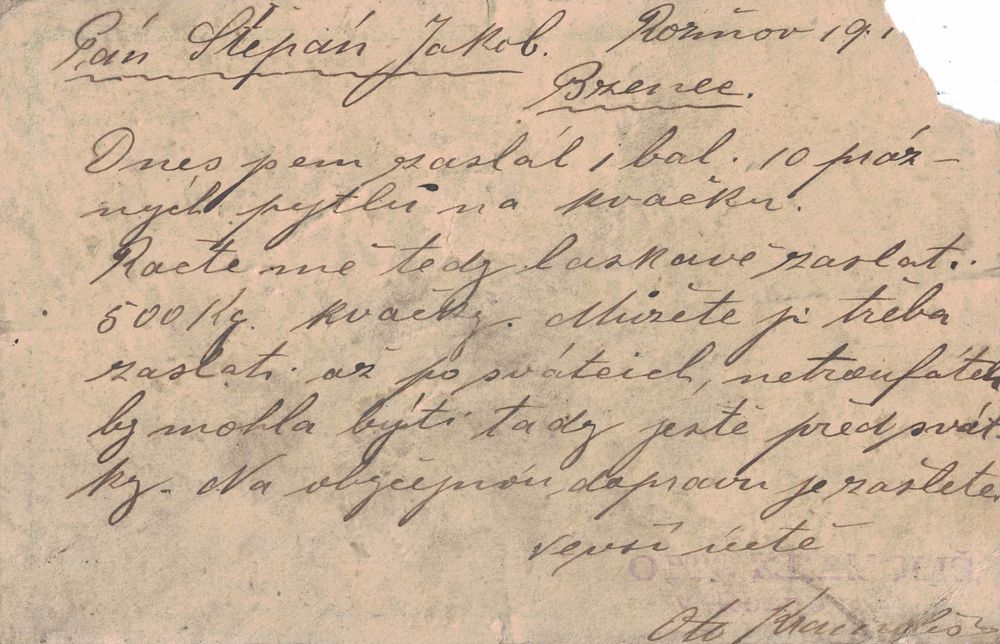 Pán Štěpán Jakob. Rožňov 19.1
Bzenec.
Dnes jsem zaslal 1 bal. 10 práz-
ných pytlů na kvačku.
Račte mě tedy laskavě zaslat
500 Kg. kvačky. Mužete ji třeba
zaslati až po svátcích, netroufáteli
by mohla býti tady ještě před svát-
ky. Na obyčejnou dopravu je zašlete
vepsí úctě
Oto